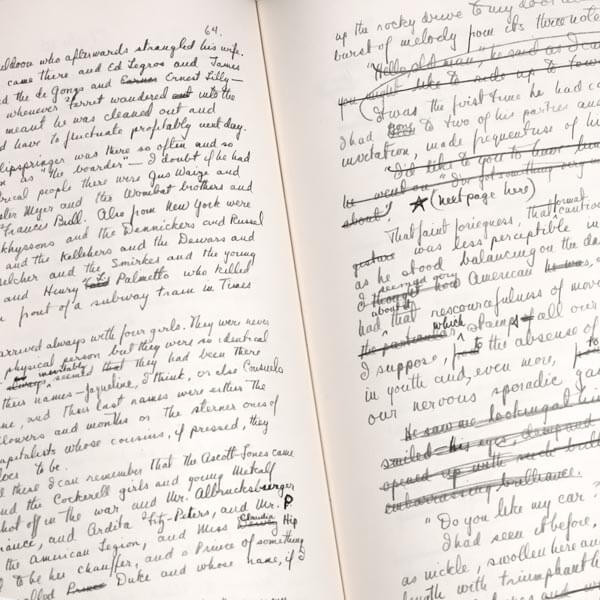 64.
uldoon who afterwards strangled his wife.
came there and Ed Legros and James
d the de Jongs and Ernest Lilly—
whenever Ferret wandered out into the
meant he was cleaned out and
d have to fluctuate profitably next day.
lipspringer was there so often and so
n as "the boarder"— I doubt if he had
real people there were Gus Waize and
ler Meyer and the Wombat brothers and
Francis Bull. Also from New York were
khyssons and the Dennickers and Russel
and the Kellehers and the Dewars and
elcher and the Smirkes and the young
and Henry Palmetto who killed
front of a subway train in Times
arrived always with four girls. They were never
physical person but they were so identical
inevitably seemed that they had been there
their names—Jaqueline, I think, or else Consuela
me, and their last names were either the
flowers and months or the sterner ones of
capitalists whose cousins, if pressed, they
lves to be.
l these I can remember that the Ascott-Jones came
and the Cockerell girls and young Metcalf
hot off in the war and Mr. Albrucksburger
iance, and Ardita Fitz-Peters, and Mr. P
the American Legion, and Miss Claudia Hip
d to be her chauffer, and a Prince of something
called Prince Duke and whose name, if I
up the rocky drive to my door
burst of melody from its three note
"Hello, old man," he said as I ca
you might like to ride up to town
(It was the first time he had ca
I had gone to two of his parties and
invitation, made frequent use of hi
"I'd like to you to have lun
he went on. "I've got something very
about." ★ (next page here)
That faint foriegness, that formal caution
gesture was less perceptible in
as he stood balancing on the da
seemed very
I thought how American he was,
about it
had that rescourcefulness of move
which stamps all our
I suppose, to the absense of
in youth and, even more,
our nervous sporadic ga
He saw me looking at his
smiled his eyes,
opened up with such brill
embarrassing brilliance.
"Do you like my car?
I had seen it before,
as nickle, swollen here and
length with triumphant h